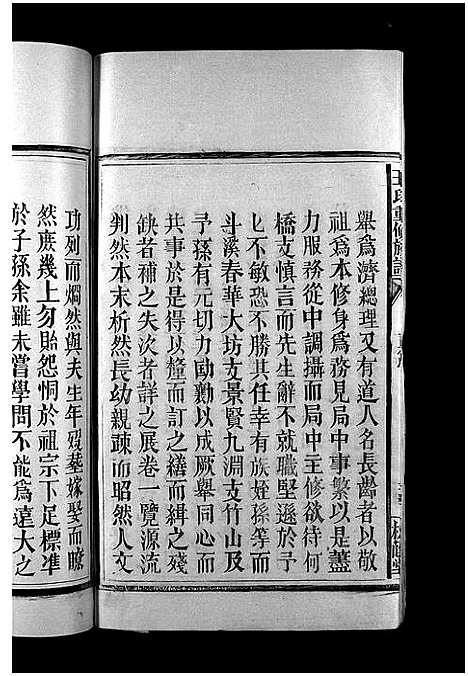 王氏重修族譜
舉爲濟總理又有道人名長齡者以敬
祖爲本修身爲務見局中事繁以是藎
力服務從中調攝而局中主修欲待何
橋支慎言而先生辭不就職堅遜於予
匕不敏恐不勝其任幸有族姪孫等而
斗溪春華大坊支景賢九淵支竹山及
予孫有元切力勷以成厥舉同心而
共事於是得以釐而訂之繕而緝之殘
缺者補之失次者詳之展卷一覽源流
判然本末析然長幼親疎而昭然人文
功列而燗然與夫生年殁塟嫁娶而瞭
然庶幾上勿貽怨恫於祖宗下足標準
於子孫余雖未嘗學問不能爲遠大之